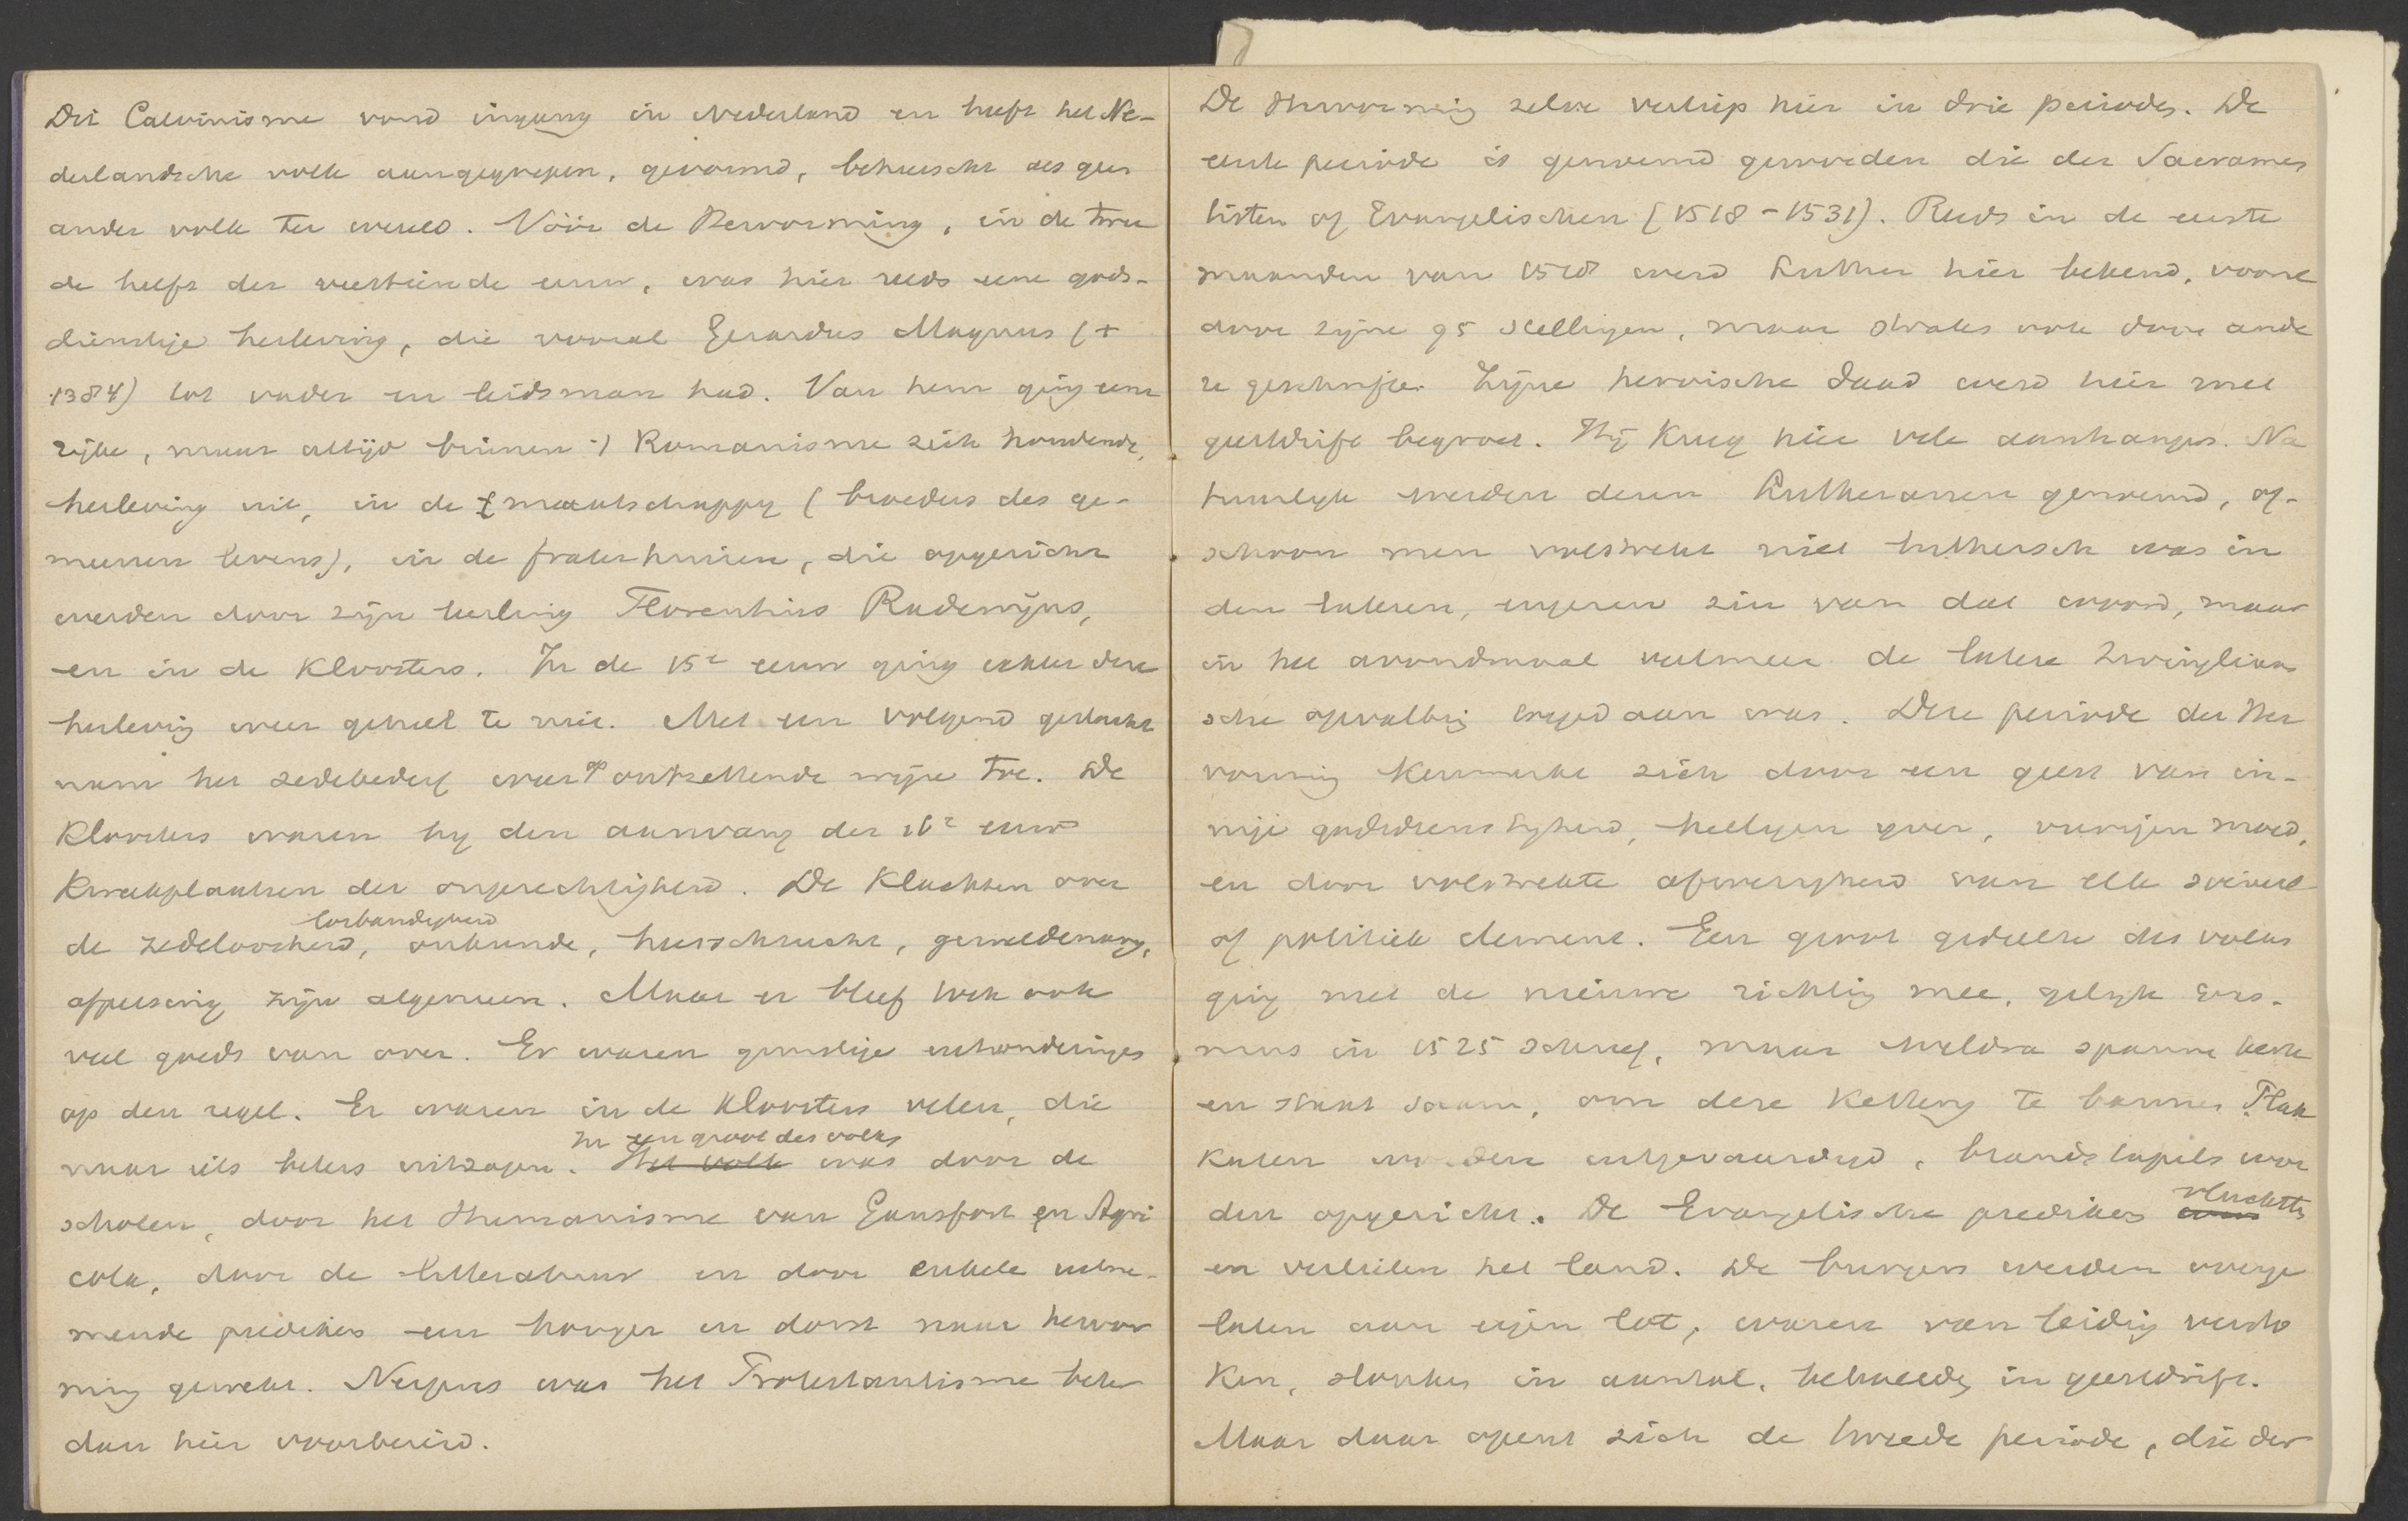 Dit Calvinisme vond ingang in Nederland en heeft het Ne-
derlandsche volk aangegrepen, gevormd, beheerscht als geen
ander volk ter wereld. Vóór de Hervorming, in de twee
de helft der veertiende eeuw, was hier reeds eene gods-
dienstige herleving, die vooral Gerardus Magnus (+
1384) tot vader en leidsman had. Van hem ging eene
rijke, maar altijd binnen 't Romanisme zich houdende,
herleving uit, in de maatschappy (broeders des ge-
meenen levens), in de fraterhuizen, die opgericht
werden door zijn leerling Florentius Radewijns,
en in de kloosters. In de 15e eeuw ging echter deze
herleving weer geheel te niet. Met een volgend geslacht
nam het zedebederf weer op ontzettende wijze toe. De
kloosters waren by den aanvang der 16e eeuw
kweekplaatsen der ongerechtigheid. De klachten over
losbandigheid
de zedeloosheid, onkunde, heerschzucht, geweldenary,
afpersing zijn algemeen. Maar er bleef toch ook
veel goeds van over. Er waren gunstige uitzonderingen
op den regel. Er waren in de kloosters velen, die
In een groot des volks
naar iets beters uitzagen. Het volk was door de
scholen, door het Humanisme van Gansfort en Agri
cola, door de litteratuur en door enkele uitne-
mende predikers een honger en dorst naar hervor
ming gewekt. Nergens was het Protestantisme beter
dan hier voorbereid.
De Hervorming zelve verliep hier in drie periodes. De
eerste periode is genoemd geworden die der Sacramen
tisten of Evangelischen (1518-1531). Reeds in de eerste
maanden van 1518 werd Luther hier bekend, vooral
door zijne 95 stellingen, maar straks ook door ande
re geschriften. Zijne heroische daad werd hier met
geestdrift begroet. Hij kreeg hier vele aanhangers. Na
tuurlyk werden dezen Lutheranen genoemd, of-
schoon men volstrekt niet luthersch was in
den lateren, engeren zin van dat woord, maar
in het avondmaal veelmeer de latere Zwingliaan
sche opvatting toegedaan was. Deze periode der Her
vorming kenmerkt zich door een geest van in-
nige godsdienstigheid, heiligen yver, vurigen moed,
en door volstrekte afwezigheid van elk sociaal
of politiek element. Een groot gedeelte des volks
ging met de nieuwe richting mee, gelyk Eras-
mus in 1525 schreef, maar weldra spanne kerk
en staat saam, om deze kettery te bannen. Plak
katen worden uitgevaardigd, brandstapels wor
den opgericht. De Evangelische predikers vluchtten
en verlieten het land. De burgers werden overge
laten aan eigen lot, waren van leiding versto
ken, slonken in aantal, bekoelde, in geestdrift.
Maar daar opent zich de tweede periode, die der